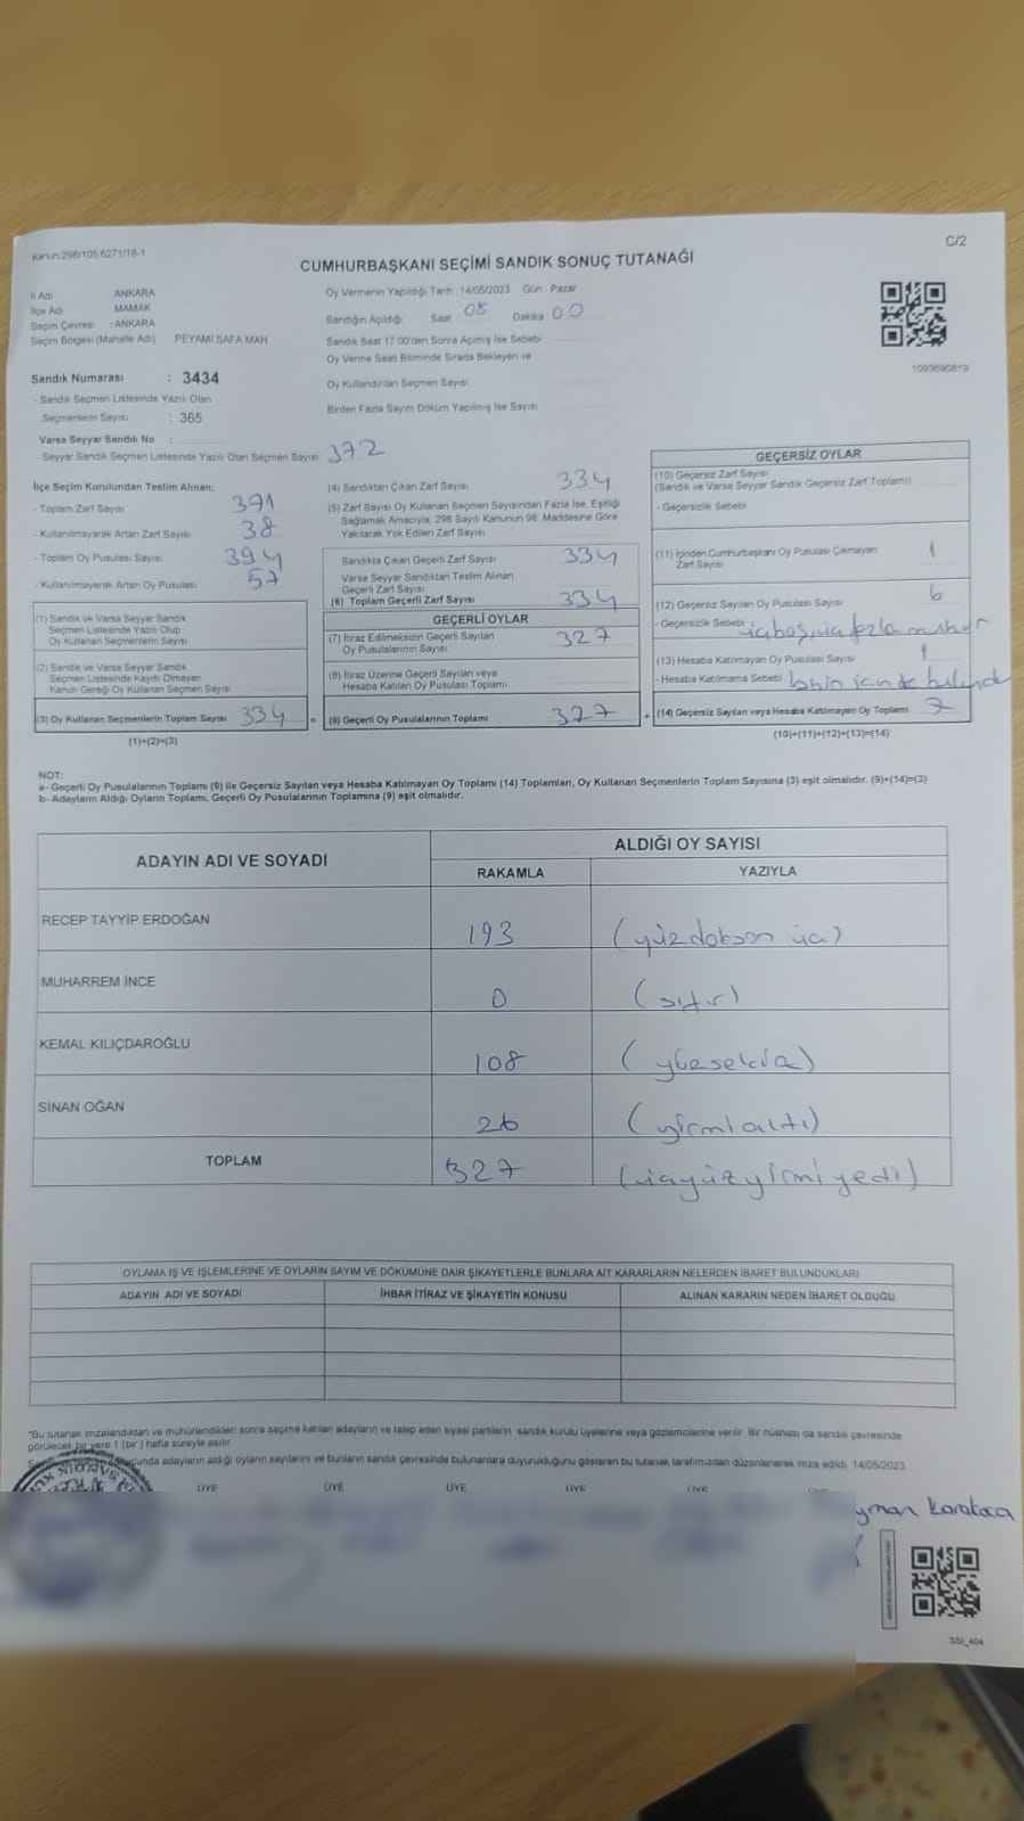 Kanun:298/105 6271/18-1
C/2
CUMHURBAŞKANI SEÇİMİ SANDIK SONUÇ TUTANAĞI
İl Adı : ANKARA
İlçe Adı : MAMAK
Seçim Çevresi : ANKARA
Seçim Bölgesi (Mahalle Adı) PEYAMİ SAFA MAH
Oy Vermenin Yapıldığı Tarih :14/05/2023 Gün : Pazar
Sandığın Açıldığı Saat 08 Dakika 00
Sandık Saat 17:00'den Sonra Açılmış İse Sebebi
Oy Verme Saati Bitiminde Sırada Bekleyen ve
Oy Kullandırılan Seçmen Sayısı
Birden Fazla Sayım Döküm Yapılmış İse Sayısı
Sandık Numarası : 3434
- Sandık Seçmen Listesinde Yazılı Olan
Seçmenlerin Sayısı : 365
Varsa Seyyar Sandık No :
- Seyyar Sandık Seçmen Listesinde Yazılı Olan Seçmen Sayısı 372
İlçe Seçim Kurulundan Teslim Alınan;
- Toplam Zarf Sayısı 391
- Kullanılmayarak Artan Zarf Sayısı 38
- Toplam Oy Pusulası Sayısı 394
- Kullanılmayarak Artan Oy Pusulası 57
(1) Sandık ve Varsa Seyyar Sandık
Seçmen Listesinde Yazılı Olup
Oy Kullanan Seçmenlerin Sayısı
(2) Sandık ve Varsa Seyyar Sandık
Seçmen Listesinde Kayıtlı Olmayan
Kanun Gereği Oy Kullanan Seçmen Sayısı
(3) Oy Kullanan Seçmenlerin Toplam Sayısı 334
(1)+(2)=(3)
(4) Sandıktan Çıkan Zarf Sayısı 334
(5) Zarf Sayısı Oy Kullanan Seçmen Sayısından Fazla İse, Eşitliği
Sağlamak Amacıyla, 298 Sayılı Kanunun 98. Maddesine Göre
Yakılarak Yok Edilen Zarf Sayısı
Sandıkta Çıkan Geçerli Zarf Sayısı 334
Varsa Seyyar Sandıktan Teslim Alınan
Geçerli Zarf Sayısı
(6) Toplam Geçerli Zarf Sayısı 334
GEÇERLİ OYLAR
(7) İtiraz Edilmeksizin Geçerli Sayılan
Oy Pusulalarının Sayısı 327
(8) İtiraz Üzerine Geçerli Sayılan veya
Hesaba Katılan Oy Pusulası Toplamı
= (9) Geçerli Oy Pusulalarının Toplamı 327
GEÇERSİZ OYLAR
(10) Geçersiz Zarf Sayısı
(Sandık ve Varsa Seyyar Sandık Geçersiz Zarf Toplamı)
- Geçersizlik Sebebi
(11) İçinden Cumhurbaşkanı Oy Pusulası Çıkmayan
Zarf Sayısı 1
(12) Geçersiz Sayılan Oy Pusulası Sayısı 6
- Geçersizlik Sebebi üçü boş, üçü fazla mühür
(13) Hesaba Katılmayan Oy Pusulası Sayısı 1
- Hesaba Katılmama Sebebi
+ (14) Geçersiz Sayılan veya Hesaba Katılmayan Oy Toplamı 7
(10)+(11)+(12)+(13)=(14)
NOT:
a- Geçerli Oy Pusulalarının Toplamı (9) ile Geçersiz Sayılan veya Hesaba Katılmayan Oy Toplamı (14) Toplamları, Oy Kullanan Seçmenlerin Toplam Sayısına (3) eşit olmalıdır. (9)+(14)=(3)
b- Adayların Aldığı Oyların Toplamı, Geçerli Oy Pusulalarının Toplamına (9) eşit olmalıdır.
ADAYIN ADI VE SOYADI ALDIĞI OY SAYISI
RAKAMLA YAZIYLA
RECEP TAYYİP ERDOĞAN 193 (yüzdoksan üç)
MUHARREM İNCE 0 (sıfır)
KEMAL KILIÇDAROĞLU 108 (yüzsekiz)
SİNAN OĞAN 26 (yirmi altı)
TOPLAM 327 (üçyüzyirmiyedi)
OYLAMA İŞ VE İŞLEMLERİNE VE OYLARIN SAYIM VE DÖKÜMÜNE DAİR ŞİKAYETLERLE BUNLARA AİT KARARLARIN NELERDEN İBARET BULUNDUKLARI
ADAYIN ADI VE SOYADI İHBAR İTİRAZ VE ŞİKAYETİN KONUSU ALINAN KARARIN NEDEN İBARET OLDUĞU
"Bu tutanak imzalandıktan ve mühürlendikten sonra seçime katılan adayların ve talep eden siyasi partilerin sandık kurulu üyelerine veya gözlemcilerine verilir. Bir nüshası da sandık çevresinde
görülecek bir yere 1 (bir) hafta süreyle asılır.
adayların aldığı oyların sayılarını ve bunların sandık çevresinde bulunanlara duyurulduğunu gösteren bu tutanak tarafımızdan düzenlenerek imza edildi. 14/05/2023
ÜYE ÜYE ÜYE ÜYE ÜYE
SSI_404